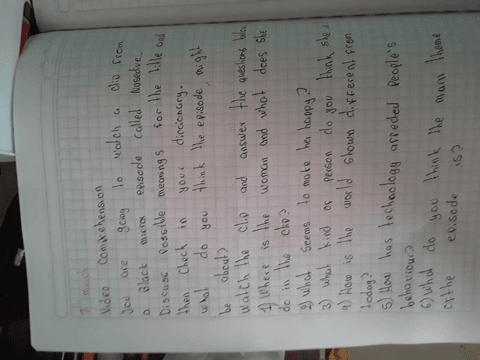 7th march
Video Comprehension
You are going to watch a clip from
a Black mirror episode called Nosedive.
Discuss Possible meanings for the title and
then check in your diccionary.
what do you think the episode might
be about?
Watch the clip and answer the questions
1) Where is the woman and what does she
do in the clip?
2) What seems to make her happy?
3) what kind of person do you think she
4) How is the world shown different from
today?
5) How has technology affected people's
behaviour?
6) What do you think the main theme
of the episode is?